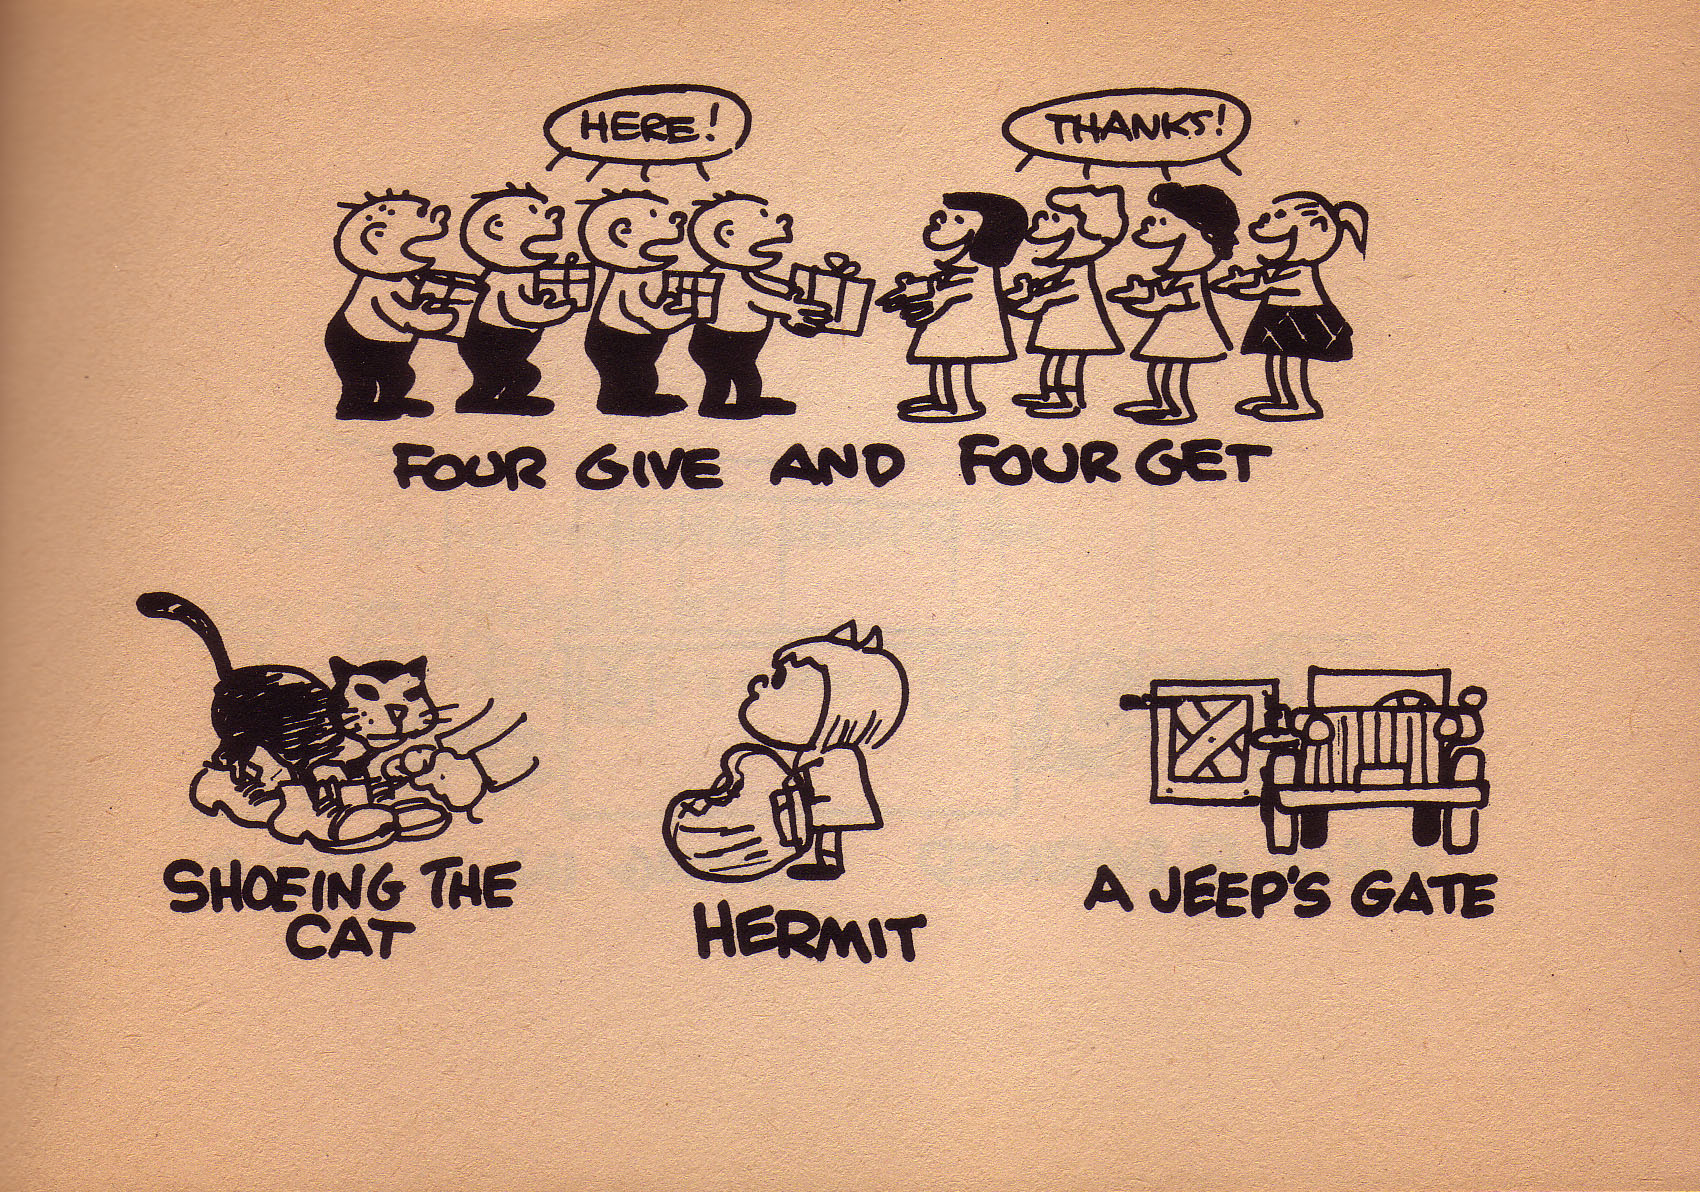 HERE!
THANKS!
FOUR GIVE AND FOUR GET
SHOEING THE
CAT
HERMIT
A JEEP'S GATE